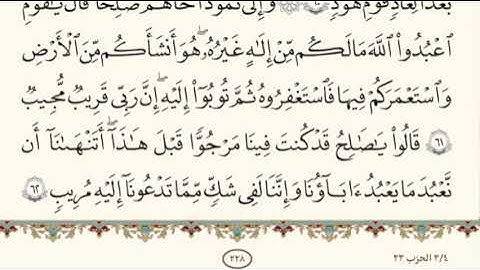 بُعْدًا لِّعَادٍ قَوْمِ هُودٍ ۝٦٠ وَإِلَىٰ ثَمُودَ أَخَاهُمْ صَٰلِحًا قَالَ يَٰقَوْمِ
ٱعْبُدُوا۟ ٱللَّهَ مَا لَكُم مِّنْ إِلَٰهٍ غَيْرُهُۥ ۖ هُوَ أَنشَأَكُم مِّنَ ٱلْأَرْضِ
وَٱسْتَعْمَرَكُمْ فِيهَا فَٱسْتَغْفِرُوهُ ثُمَّ تُوبُوٓا۟ إِلَيْهِ ۚ إِنَّ رَبِّى قَرِيبٌ مُّجِيبٌ
۝٦١ قَالُوا۟ يَٰصَٰلِحُ قَدْ كُنتَ فِينَا مَرْجُوًّا قَبْلَ هَٰذَآ ۖ أَتَنْهَىٰنَآ أَن
نَّعْبُدَ مَا يَعْبُدُ ءَابَآؤُنَا وَإِنَّنَا لَفِى شَكٍّ مِّمَّا تَدْعُونَآ إِلَيْهِ مُرِيبٍ ۝٦٢
٣/٤ الحزب ٢٣
٢٢٨